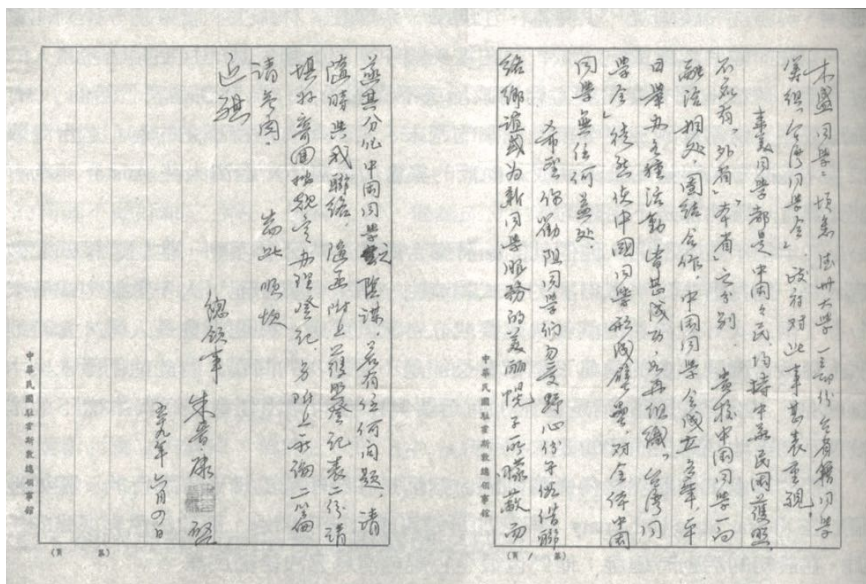 木盛同學:頃悉德州大學一部份台省籍同學
籌組「台灣同學会」,政府对此事甚表重視。
來美同學都是中國公民,均持中華民國護照,
不分「外省」「本省」之分別。貴校中國同學一向
融洽相处,團結合作,中國同學会成立多年,平
日舉办各種活動,皆甚成功,如再組織「台灣同
學会」徒然使中國同學形成壁壘,对全体中國
同學無任何益处。
希望你勸阻同學們勿受野心份子假借聯
絡鄉誼或為新同學服務的美麗幌子所矇蔽而
中華民國駐霍斯敦總領事館
(頁 1 第)
遂其分化中國同學之陰謀。若有任何問題,請
隨時與我聯絡。隨函附上護照登記表二份請
填好寄回办理登記,另附上社論二篇
請參閱。 耑此順頌
近祺
總領事 朱晉康 啟
五十九年六月四日
中華民國駐霍斯敦總領事館
(頁 第)